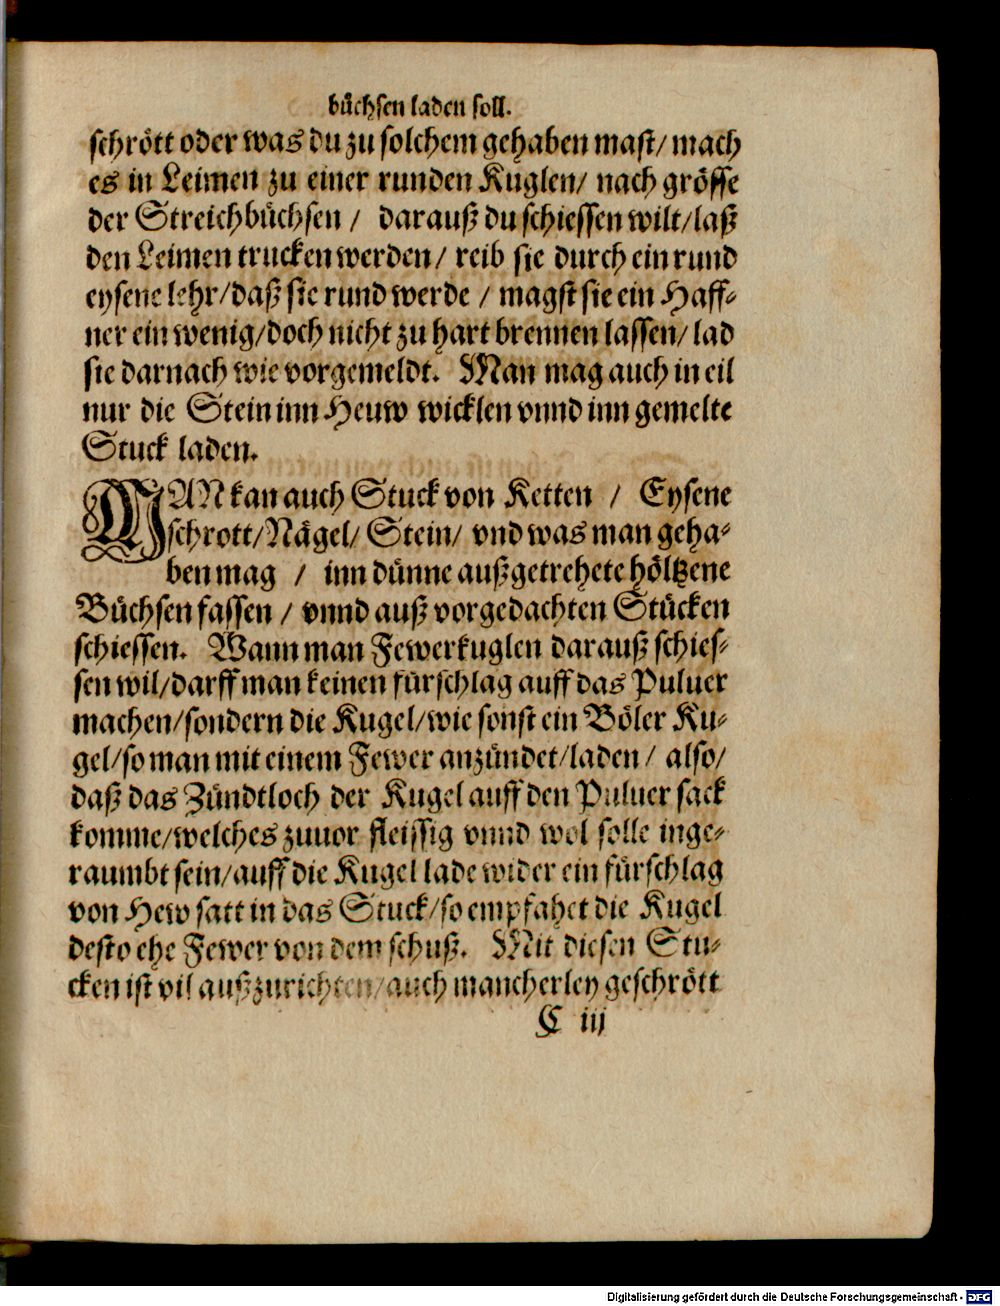 büchsen laden soll.
schrött oder was du zu solchem gehaben mast/ mach
es in Leimen zu einer runden Kuglen/ nach grösse
der Streichbüchsen / darauß du schiessen wilt/ laß
den Leimen trucken werden/ reib sie durch ein rund
eysene lehr/ daß sie rund werde / magst sie ein Haff-
ner ein wenig/ doch nicht zu hart brennen lassen/ lad
sie darnach wie vorgemeldt. Man mag auch in eil
nur die Stein inn Heuw wicklen vnnd inn gemelte
Stuck laden.
MAN kan auch Stuck von Ketten / Eysene
schrott/ Nägel/ Stein/ vnd was man geha-
ben mag / inn dünne außgetrehete höltzene
Büchsen fassen / vnnd auß vorgedachten Stücken
schiessen. Wann man Fewerkuglen darauß schies-
sen wil/ darff man keinen fürschlag auff das Puluer
machen/ sondern die Kugel/ wie sonst ein Böler Ku-
gel/ so man mit einem Fewer anzündet/ laden / also/
daß das Zündtloch der Kugel auff den Puluer sack
komme/ welches zuuor fleissig vnnd wol solle inge-
raumbt sein/ auff die Kugel lade wider ein fürschlag
von Hew satt in das Stuck/ so empfahet die Kugel
desto ehe Fewer von dem schuß. Mit diesen Stu-
cken ist vil außzurichten/ auch mancherley geschrött
C iij
Digitalisierung gefördert durch die Deutsche Forschungsgemeinschaft - DFG